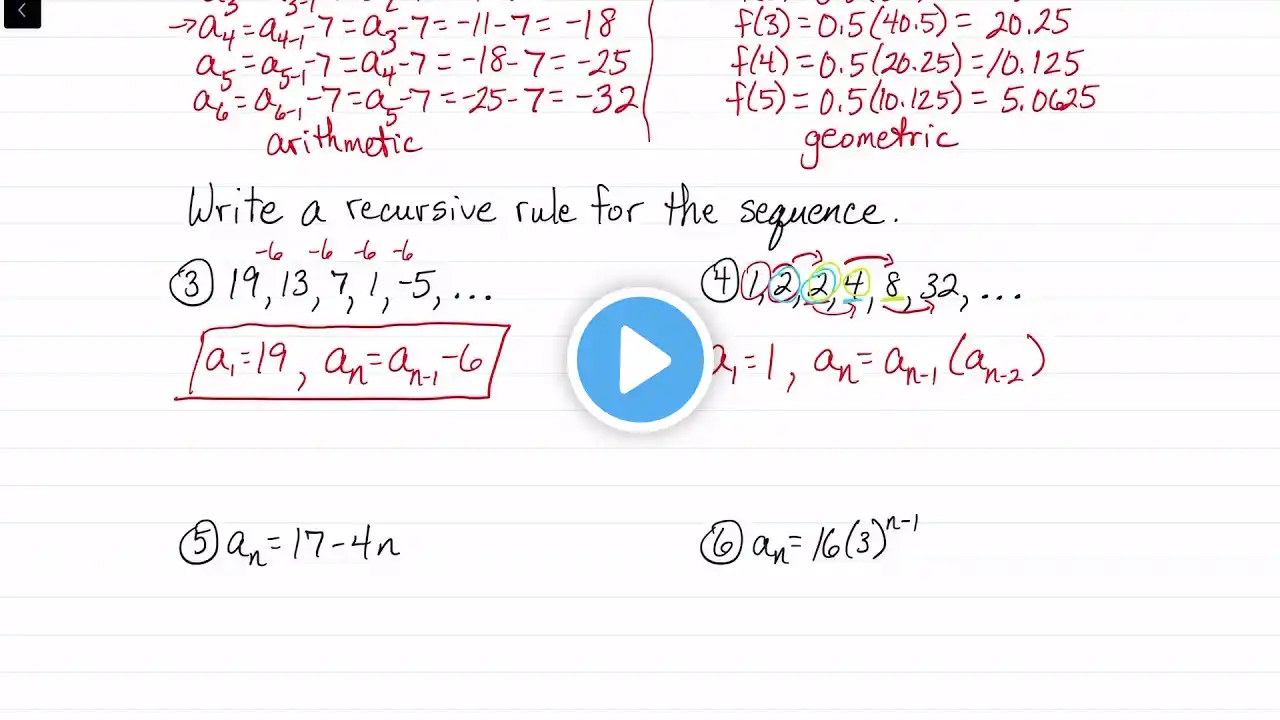 →a₄=a₄₋₁-7=a₃-7=-11-7=-18
a₅=a₅₋₁-7=a₄-7=-18-7=-25
a₆=a₆₋₁-7=a₅-7=-25-7=-32
arithmetic
f(3)=0.5(40.5)=20.25
f(4)=0.5(20.25)=10.125
f(5)=0.5(10.125)=5.0625
geometric
Write a recursive rule for the sequence.
-6 -6 -6 -6
③ 19, 13, 7, 1, -5, ...
a₁=19, aₙ=aₙ₋₁-6
④ 1, 2, 2, 4, 8, 32, ...
a₁=1, aₙ=aₙ₋₁(aₙ₋₂)
⑤ aₙ=17-4n
⑥ aₙ=16(3)ⁿ⁻¹